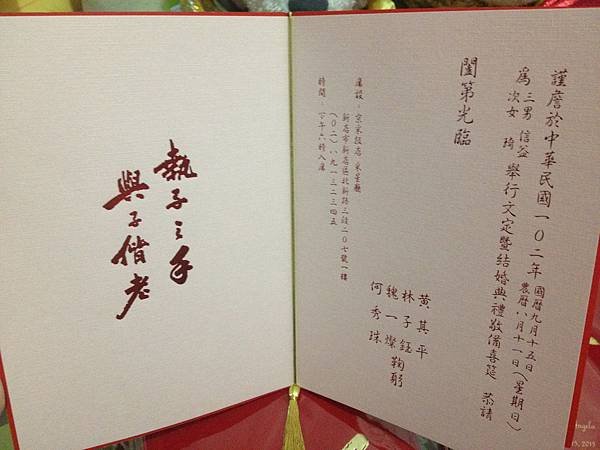 謹詹於中華民國一0二年 國曆九月十五日 農曆八月十一日(星期日)
為 三男 信益 次女 琦 舉行文定暨結婚典禮敬備喜筵 恭請
闔第光臨
黃其平
林子鈺
魏一燦 鞠躬
何秀珠
席設:京采飯店 采星廳
新店市新店區北新路三段二0七號一樓
(0二)八九一三二三四五
時間:下午六時入席
執子之手
與子偕老
Angela
15, 2013